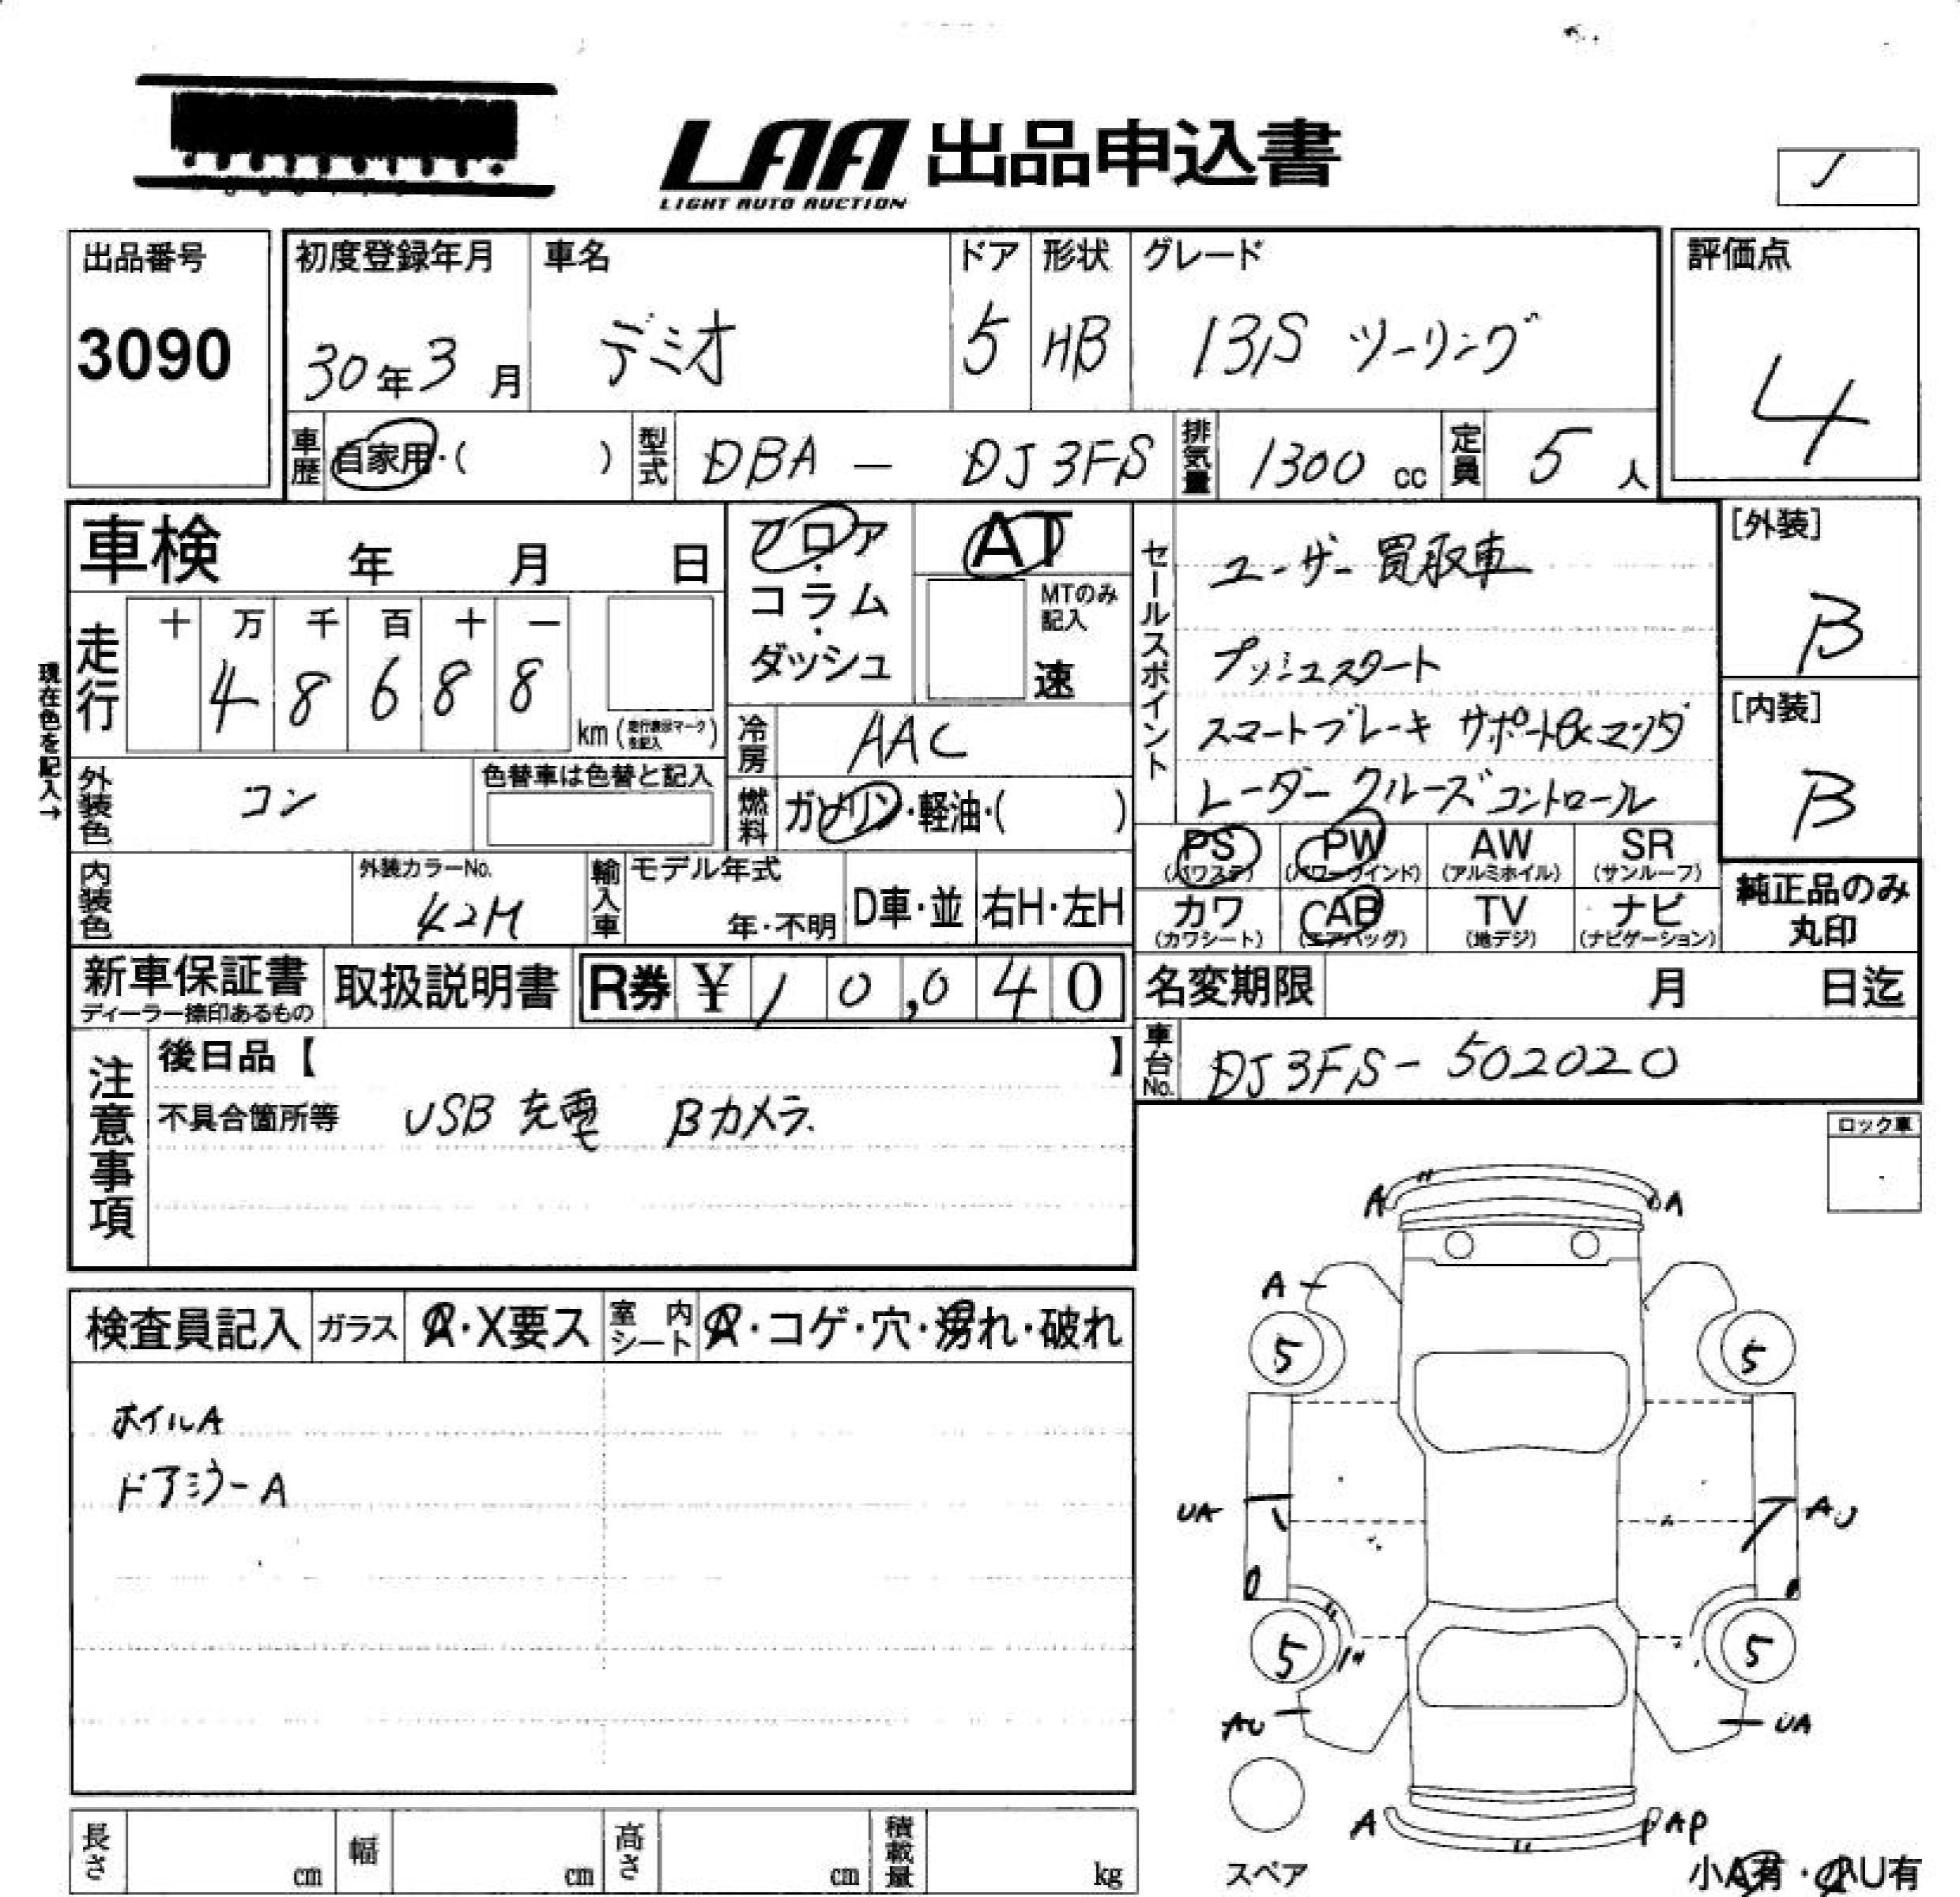 LAA 出品申込書
LIGHT AUTO AUCTION
出品番号
3090
初度登録年月
30年3月
車名
デミオ
ドア
5
形状
HB
グレード
13S ツーリング
評価点
4
車歴
自家用・( )
型式
DBA - DJ3FS
排気量
1300 cc
定員
5人
車検 年 月 日
走行
十 万 千 百 十 一
4 8 6 8 8
km (走行表示マークを記入)
現在色を記入→
フロア・コラム・ダッシュ
AT
MTのみ記入
速
冷房
AAC
燃料
ガソリン・軽油・( )
外装色
コン
色替車は色替と記入
内装色
外装カラーNo.
42M
輸入車
モデル年式
年・不明
D車・並
右H・左H
セールスポイント
ユーザー買取車
プッシュスタート
スマートブレーキ サポート&マツダ
レーダークルーズコントロール
[外装]
B
[内装]
B
PS (パワステ)
PW (パワーウインド)
AW (アルミホイル)
SR (サンルーフ)
カワ (カワシート)
AB (エアバッグ)
TV (地デジ)
ナビ (ナビゲーション)
純正品のみ
丸印
新車保証書
ディーラー捺印あるもの
取扱説明書
R券 ¥10,040
名変期限 月 日迄
車台No.
DJ3FS-502020
注意事項
後日品【 】
不具合箇所等 USB 充電 Bカメラ
ロック車
検査員記入
ガラス
A・X要ス
室内シート
A・コゲ・穴・汚れ・破れ
ホイルA
ドアミラーA
A A
A
5 5
UA AU
5 5
AU UA
A AP
スペア
小A有・小U有
長さ cm
幅 cm
高さ cm
積載量 kg